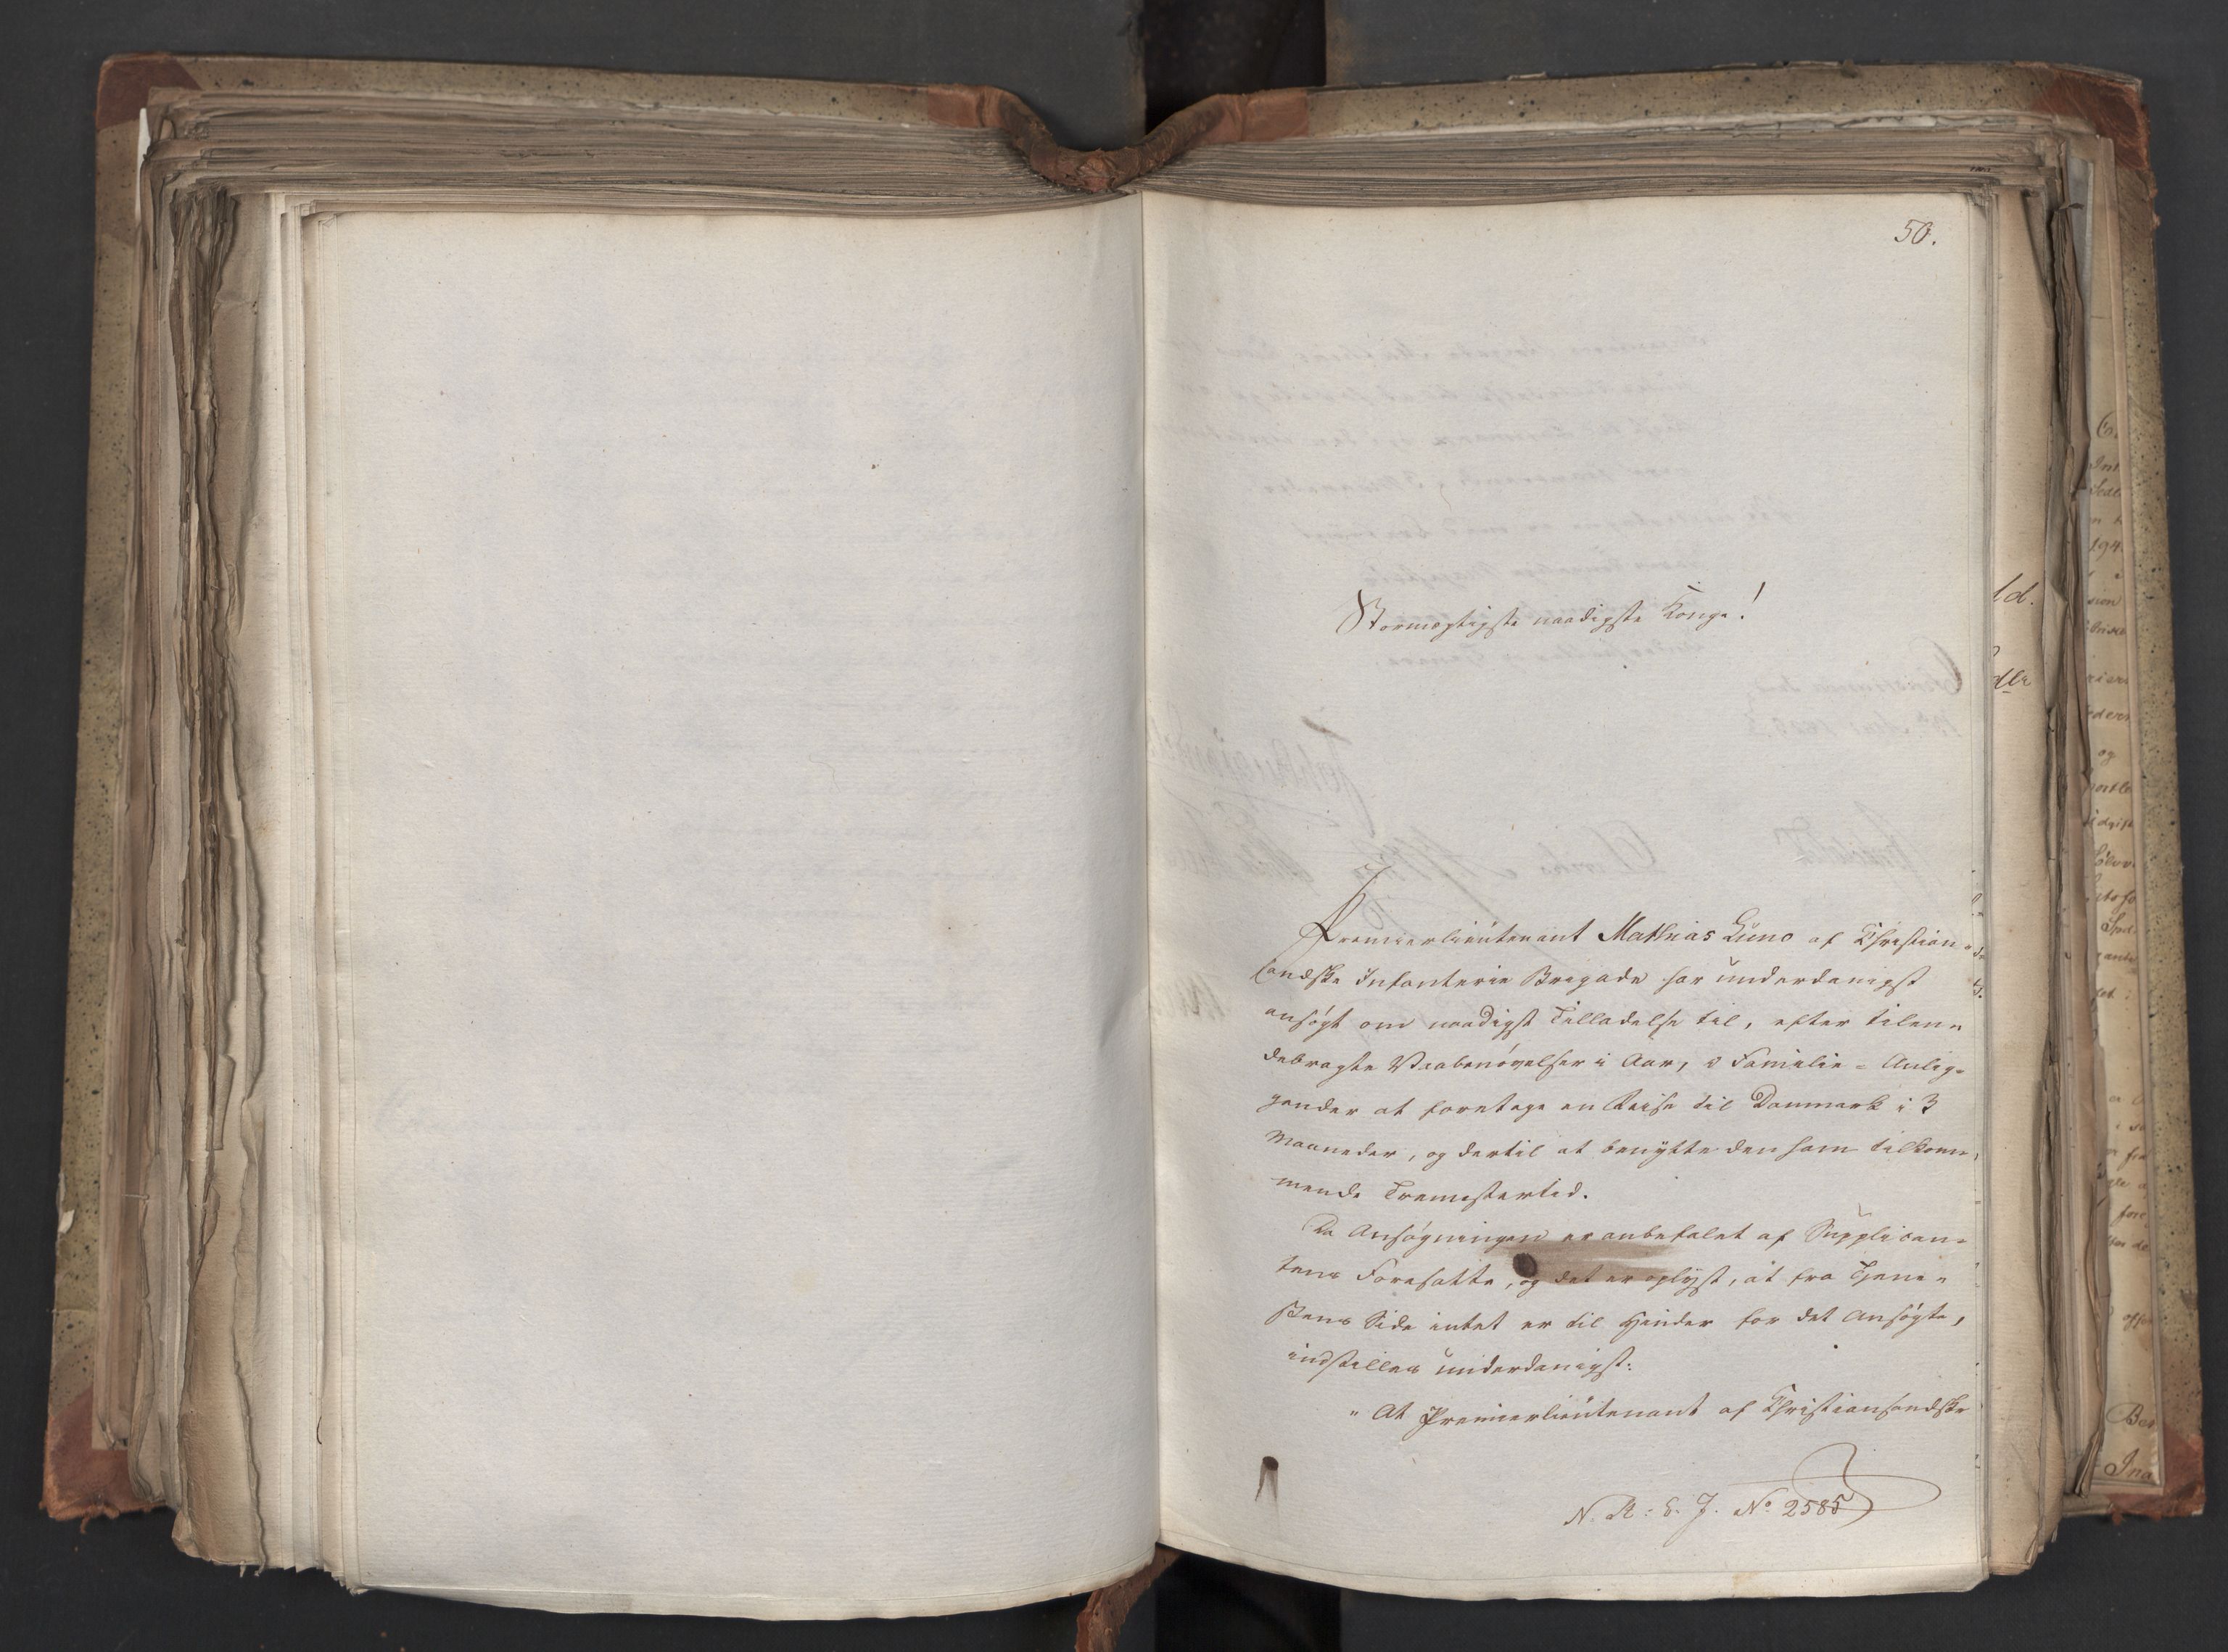 50.
Stormægtigste naadigste Konge!
Premierlieutenant Mathias Luno af Christian=
sandske Infanterie Brigade har underdanigst
ansøgt om naadigst Tilladelse til, efter tilen=
debragte Vaabenøvelser i Aar, i Familie=Anlig=
gender at foretage en Reise til Danmark i 3
Maaneder, og dertil at benytte den ham tilkom=
mende Tremestertid.
Da Ansøgningen er anbefalet af Supplican=
tens Foresatte, og det er oplyst, at fra Tjene=
stens Side intet er til Hinder for det Ansøgte,
indstilles underdanigst:
"At Premierlieutenant af Christiansandske
N. R: E. J. No 2585